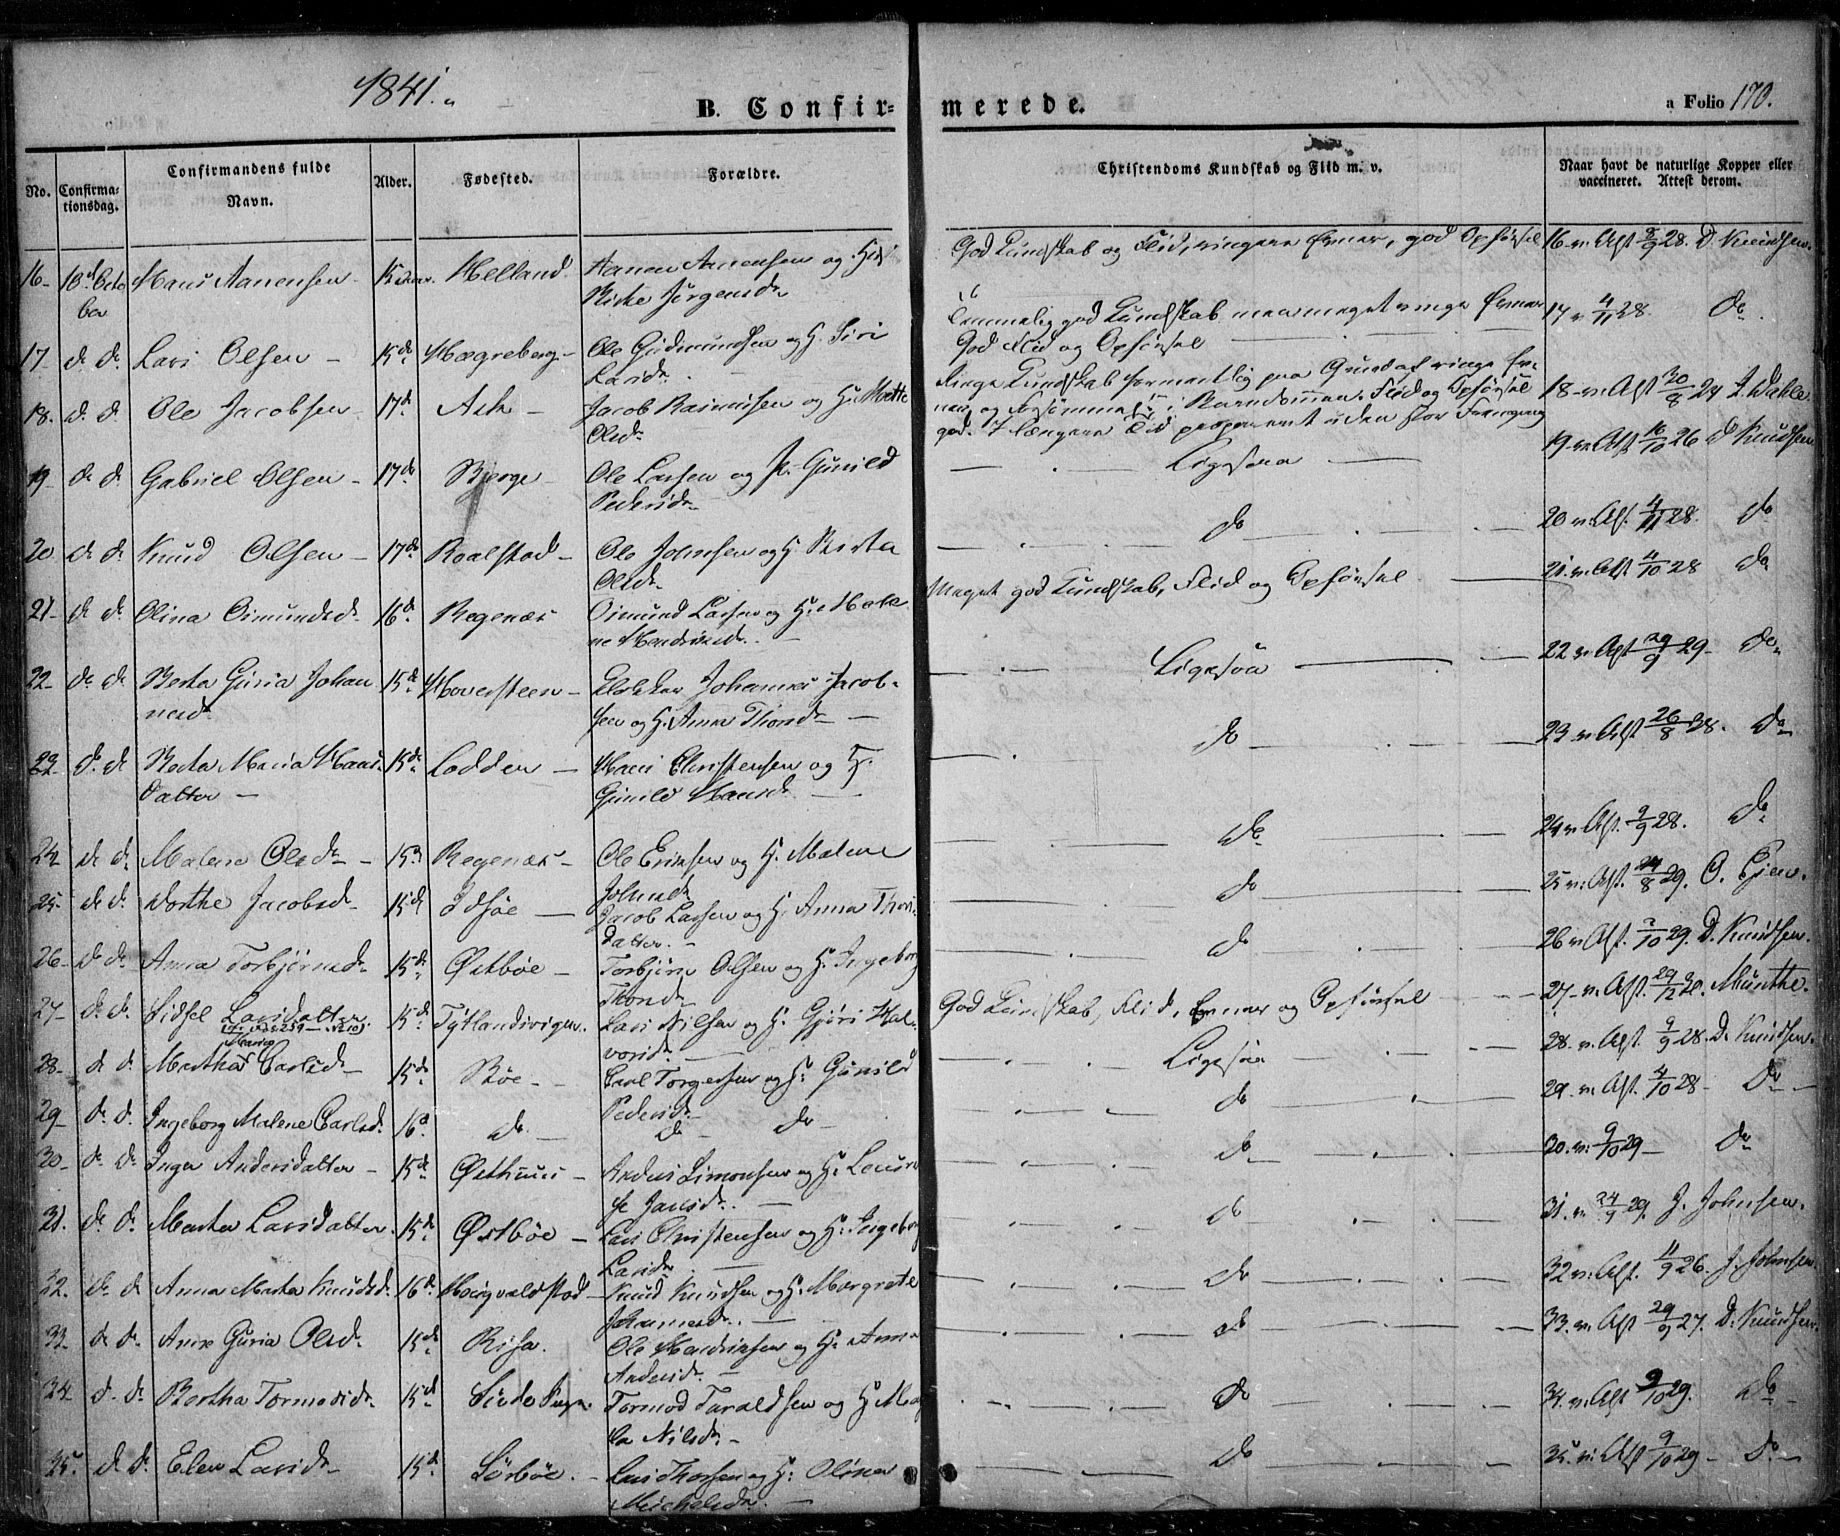 1841.
B. Confirmerede.
a Folio 170.
No.
Confirmationsdag.
Confirmandens fulde Navn.
Alder.
Fødested.
Forældre.
Christendoms Kundskab og Flid m. v.
Naar havt de naturlige Kopper eller vaccineret. Attest derom.
16 Hans Aanensen 15 Helland Aanen Aanensen og H:
Birte Jørgensd.
God Kundskab og Flid, ringere Evner, god Opførsel
16 v. Aft. 8/9 28. D. Knudsen.
17 d. d. Lars Olsen 15 d. Hegreberg Ole Gudmundsen og H. Siri
Larsd.
Temmelig god Kundskab men meget ringe Evner
God Flid og Opførsel
17 v. 4/11 28. do
18. d. d. Ole Jacobsen 17 d. Ask Jacob Rasmusen og H: Mette
Olsd.
Ringe Kundskab formentlig paa Grund af ringe Ev-
ner og Forsømmelse i Barndommen. Flid og Opførsel
god. I længere Tid præpareret uden stor Fremgang
18 v. Aft 30/8 24 J. Dahle.
19 d. d. Gabriel Olsen 17 d. Bjerge Ole Larsen og H. Gunild
Pedersd.
Ligesaa
19 v. Aft 16/10 26 D Knudsen
20 d. d. Knud Olsen 17 d. Roalstad Ole Johnsen og H. Berta
Olsd.
do
20 v. Aft. 4/11 28. do
21 d. d. Olina Osmundsd. 16 d. Regenæs Osmund Larsen og H:
Meget god Kundskab, Flid og Opførsel
21. v. Aft 4/10 28 do
22 d. d. Berta Guria Johan-
nesd. 15 d. Hoversteen Johannes Jacob-
sen og H. Anna Thorsd.
Ligesaa
22 v. Aft 29/9 29 do
23 d. d. Berta Maria Hans-
datter 15 d. Lodden Hans Christensen og H.
Gunild Hansd.
do
23 v. Aft 26/8 28. do
24 d. d. Malene Olsd. 15 d Regenæs Ole Eriksen og H. Malene
Johnsd.
do
24 v. Aft. 9/9 28. do
25. d. d. Dorthe Jacobsd. 15 d Idsøe Jacob Larsen og H. Anna Thors-
datter.
do
25 v. Aft. 24/8 29. O.
26 d. d. Anna Torbjørnsd. 15 d. Østbøe Torbjørn Olsen og H. Ingeborg
Thorsd.
do
26 v. Aft. /10 29. D. Knudsen.
27 d. d. Sidsel Larsdatter 15 d. Tytlandsvigen Lars Nilsen og H. Gjøri Hal-
vorsd.
God Kundskab, Flid, Evner og Opførsel
27 v. Aft. 29/12 Munthe.
28 d. d. Martha Maria Carlsd. 15 d. Bøe Carl Torgersen og H: Gunild
Pedersd.
Ligesaa
28 v. Aft. 9/9 28. D. Knudsen.
29 d. d. Ingeborg Malene Carlsd. 16 d. do do do
do
29 v. Aft. 4/10 28 do
30 d. d. Inger Andersdatter 15 d. Østhuus Anders Simonsen og H:
Jansd.
do
30. v. 9/10 29 do
31. d. d. Marta Larsdatter 15 d. Østbøe Lars Christensen og H. Ingeborg
Larsd.
do
31. v. 24/9 29. J. Johnsen.
32. d. d. Anna Marta Knudsd. 16 d. Knud Knudsen og H. Margrete
Johannesd.
do
32 v. Aft. 4/9 26. J. Johnsen.
33. d. d. Anne Guria Olsd. 15 d. Risa. Ole Hendriksen og H: Anna
Andersd.
do
33. v. Aft 29/9 27. D. Knudsen.
34 d. d. Bertha Tormodsd. 15 d Tormod Taraldsen og H.
Nilsd.
do
34. v. Aft 9/10 29. do
35. d. d. Elen Larsd. 15 d. Sørbøe. Lars Thorsen og H: Olene
Michelsd.
do
35. v. Aft 9/10 29 do